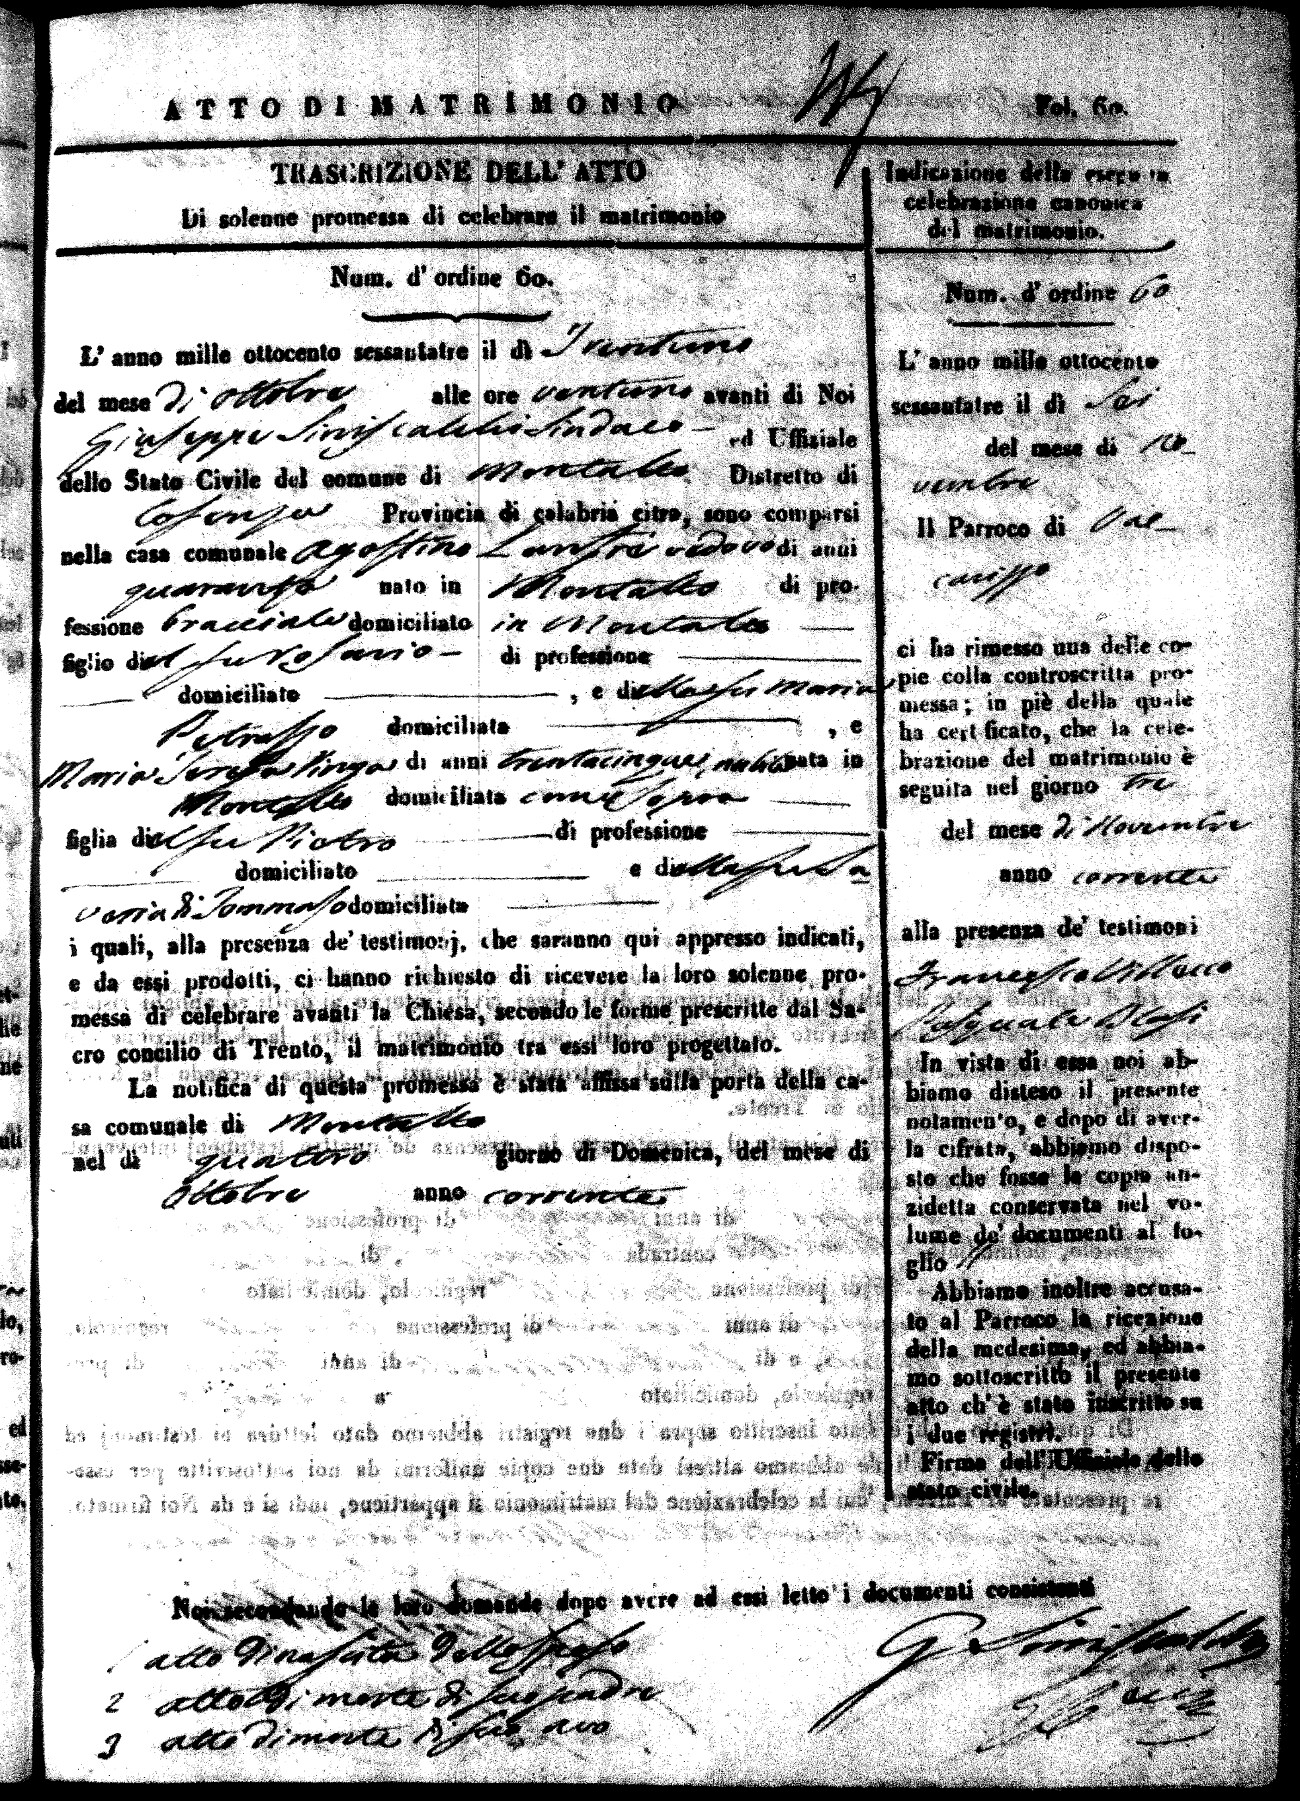 ATTO DI MATRIMONIO
Fol. 60.
TRASCRIZIONE DELL' ATTO
Di solenne promessa di celebrare il matrimonio
Num. d' ordine 60.
L' anno mille ottocento sessantatre il dì Trentuno
del mese di ottobre alle ore ventuno avanti di Noi
Giuseppe Siniscalchi Sindaco ed Uffiziale
dello Stato Civile del comune di Montalto Distretto di
Cosenza Provincia di calabria citra, sono comparsi
nella casa comunale Agostino vedovo di anni
quaranta nato in Montalto di pro-
fessione bracciale domiciliato in Montalto
figlio del fu Rosario di professione
domiciliato , e della fu Maria
Petrasso domiciliata , e
Maria Teresa di anni trentacinque, nubile nata in
Montalto domiciliata come sopra
figlia del fu Pietro di professione
domiciliato e della fu Sa
veria di Tommaso domiciliata
i quali, alla presenza de' testimonj, che saranno qui appresso indicati,
e da essi prodotti, ci hanno richiesto di ricevere la loro solenne pro-
messa di celebrare avanti la Chiesa, secondo le forme prescritte dal Sa-
cro concilio di Trento, il matrimonio tra essi loro progettato.
La notifica di questa promessa è stata affissa sulla porta della ca-
sa comunale di Montalto
nel dì quattro giorno di Domenica, del mese di
Ottobre anno corrente
Indicazione della seguita
celebrazione canonica
del matrimonio.
Num. d' ordine 60
L' anno mille ottocento
sessantatre il dì Sei
del mese di No
vembre
Il Parroco di Vac
carizzo
ci ha rimesso una delle co-
pie colla controscritta pro-
messa; in piè della quale
ha certificato, che la cele-
brazione del matrimonio è
seguita nel giorno tre
del mese di Novembre
anno corrente
alla presenza de' testimoni
Francesco Villacco
Pasquale Blasi
In vista di essa noi ab-
biamo disteso il presente
notamento, e dopo di aver-
la cifrata, abbiamo dispo-
sto che fosse la copia an-
zidetta conservata nel vo-
lume de' documenti al fo-
glio
Abbiamo inoltre accusa-
to al Parroco la ricezione
della medesima, ed abbia-
mo sottoscritto il presente
atto ch' è stato inscritto su
i due registri.
Firma dell' Uffiziale dello
stato civile.
Noi secondando le loro domande dopo avere ad essi letto i documenti consistenti
1 atto di nascita dello sposo
2 atto di morte di suo padre
3 atto di morte di suo avo
G Siniscalchi